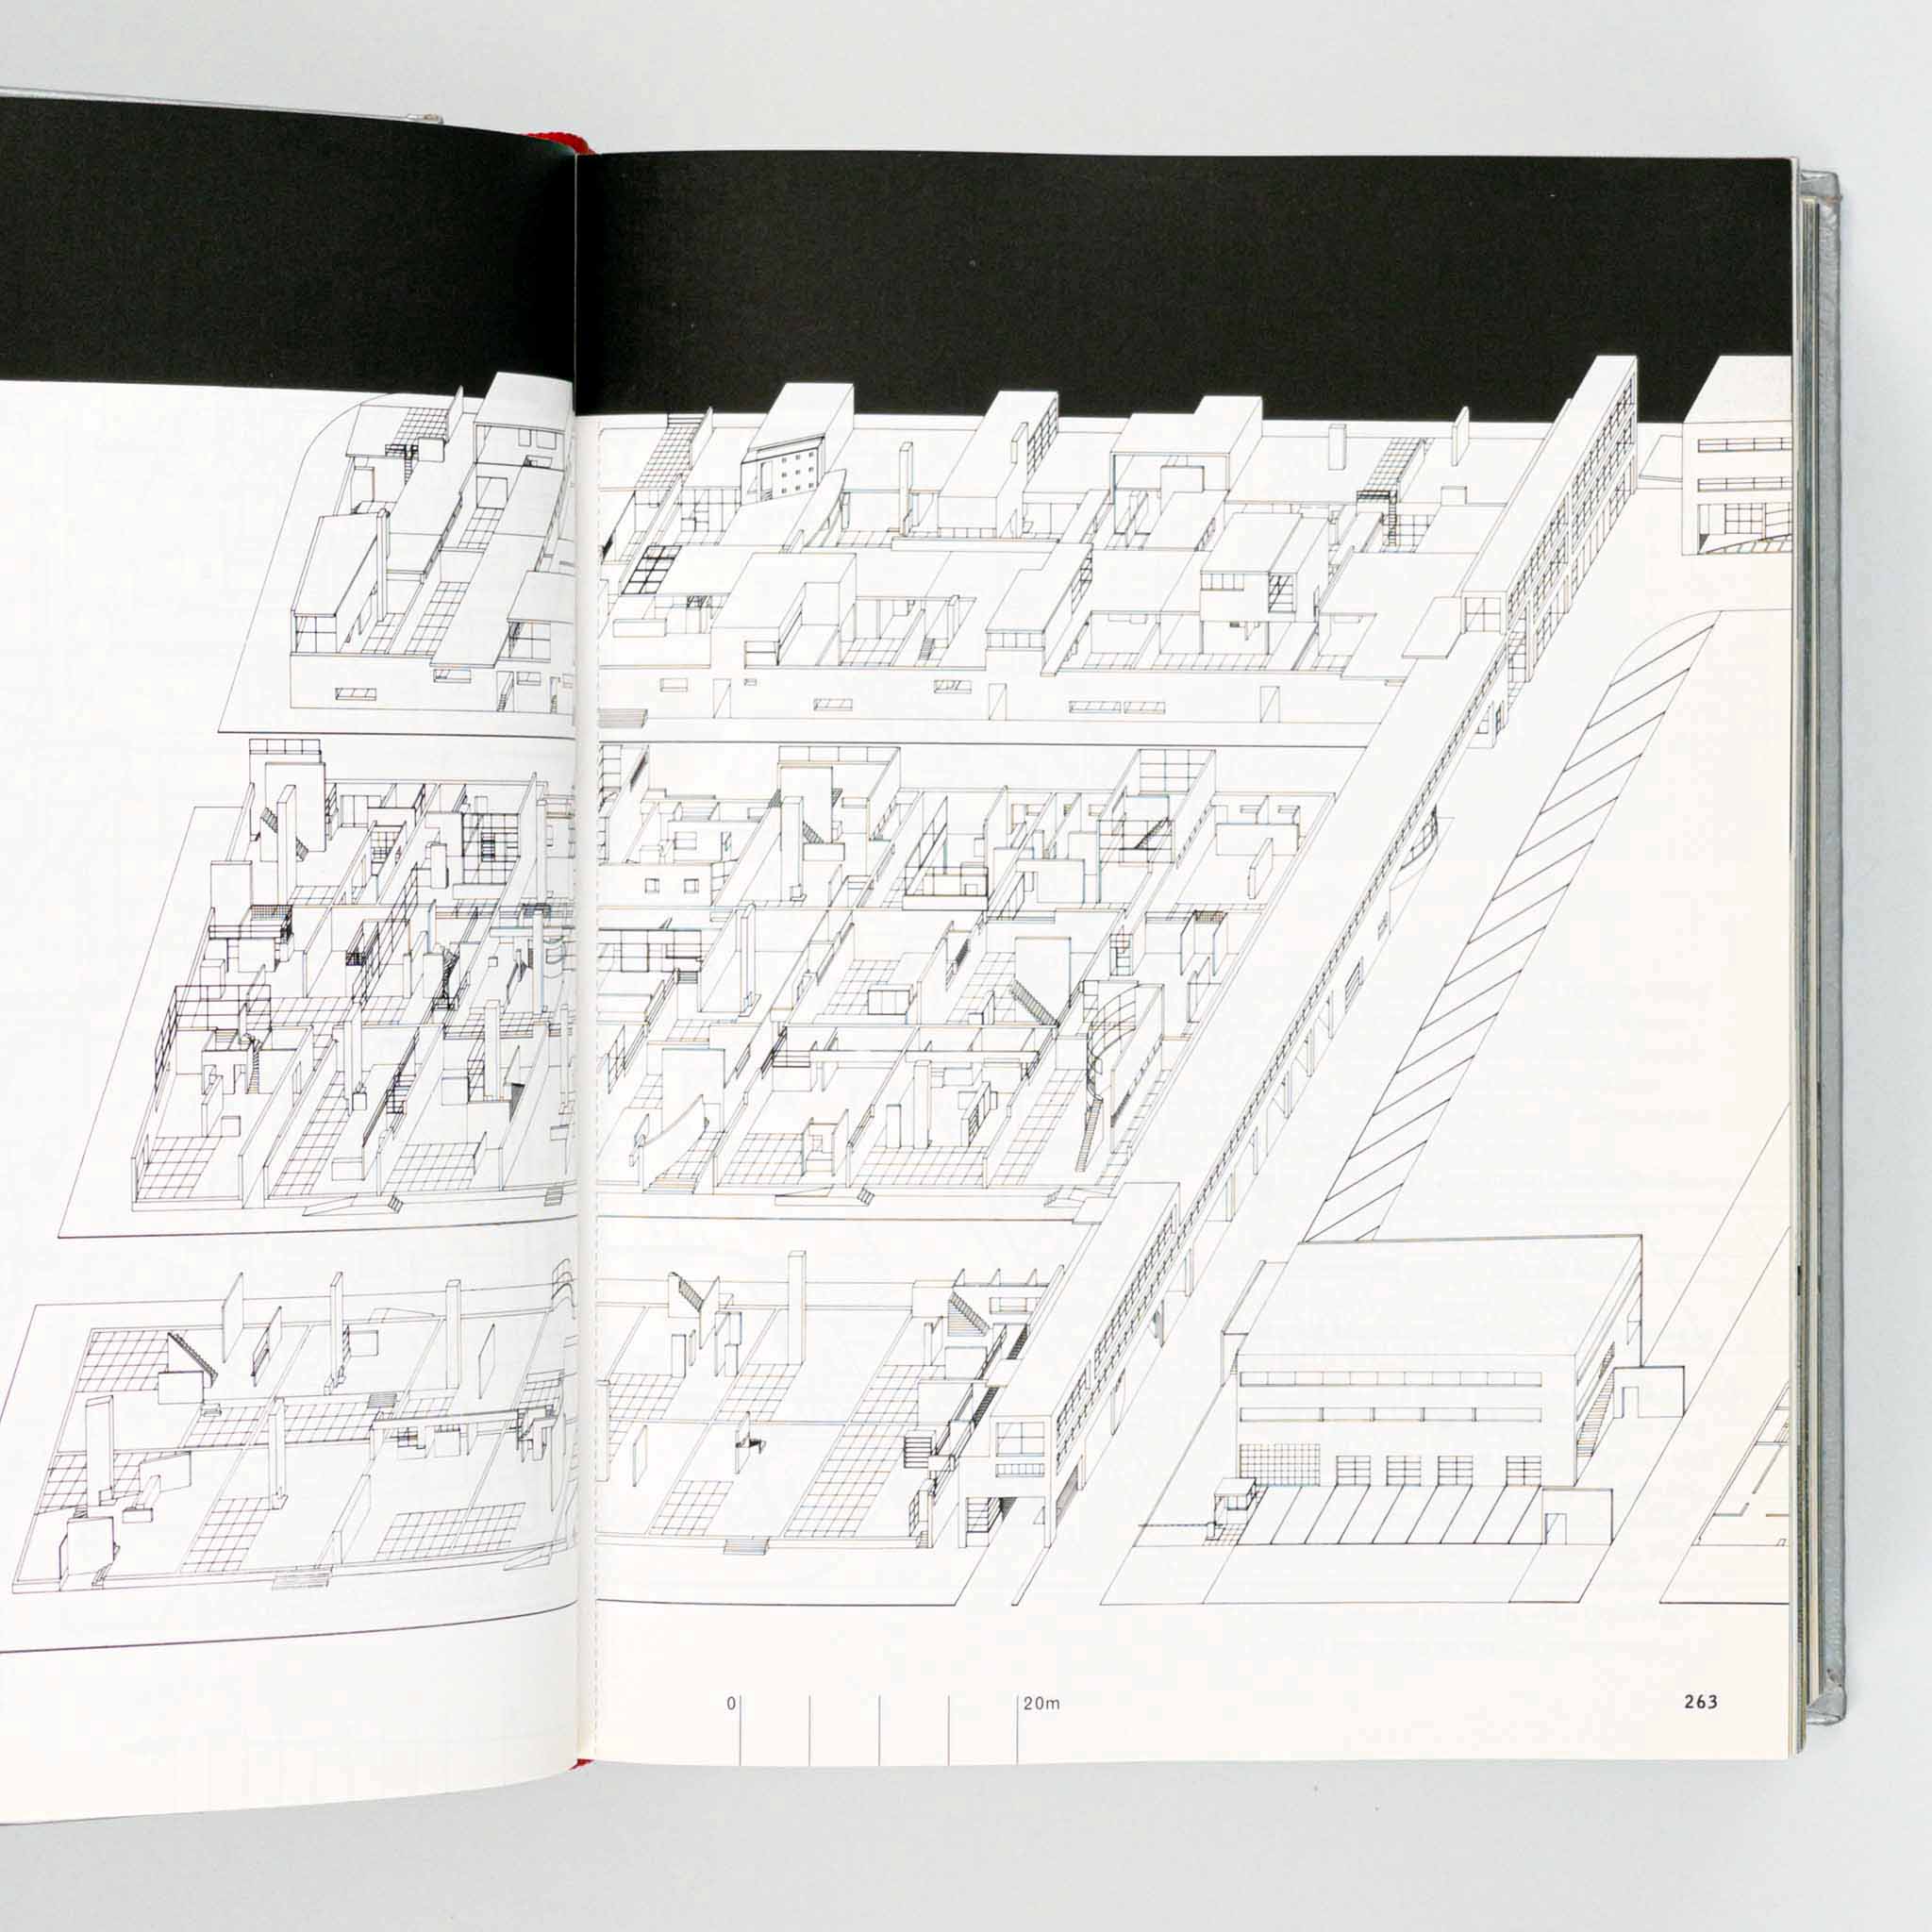 0 20m
263